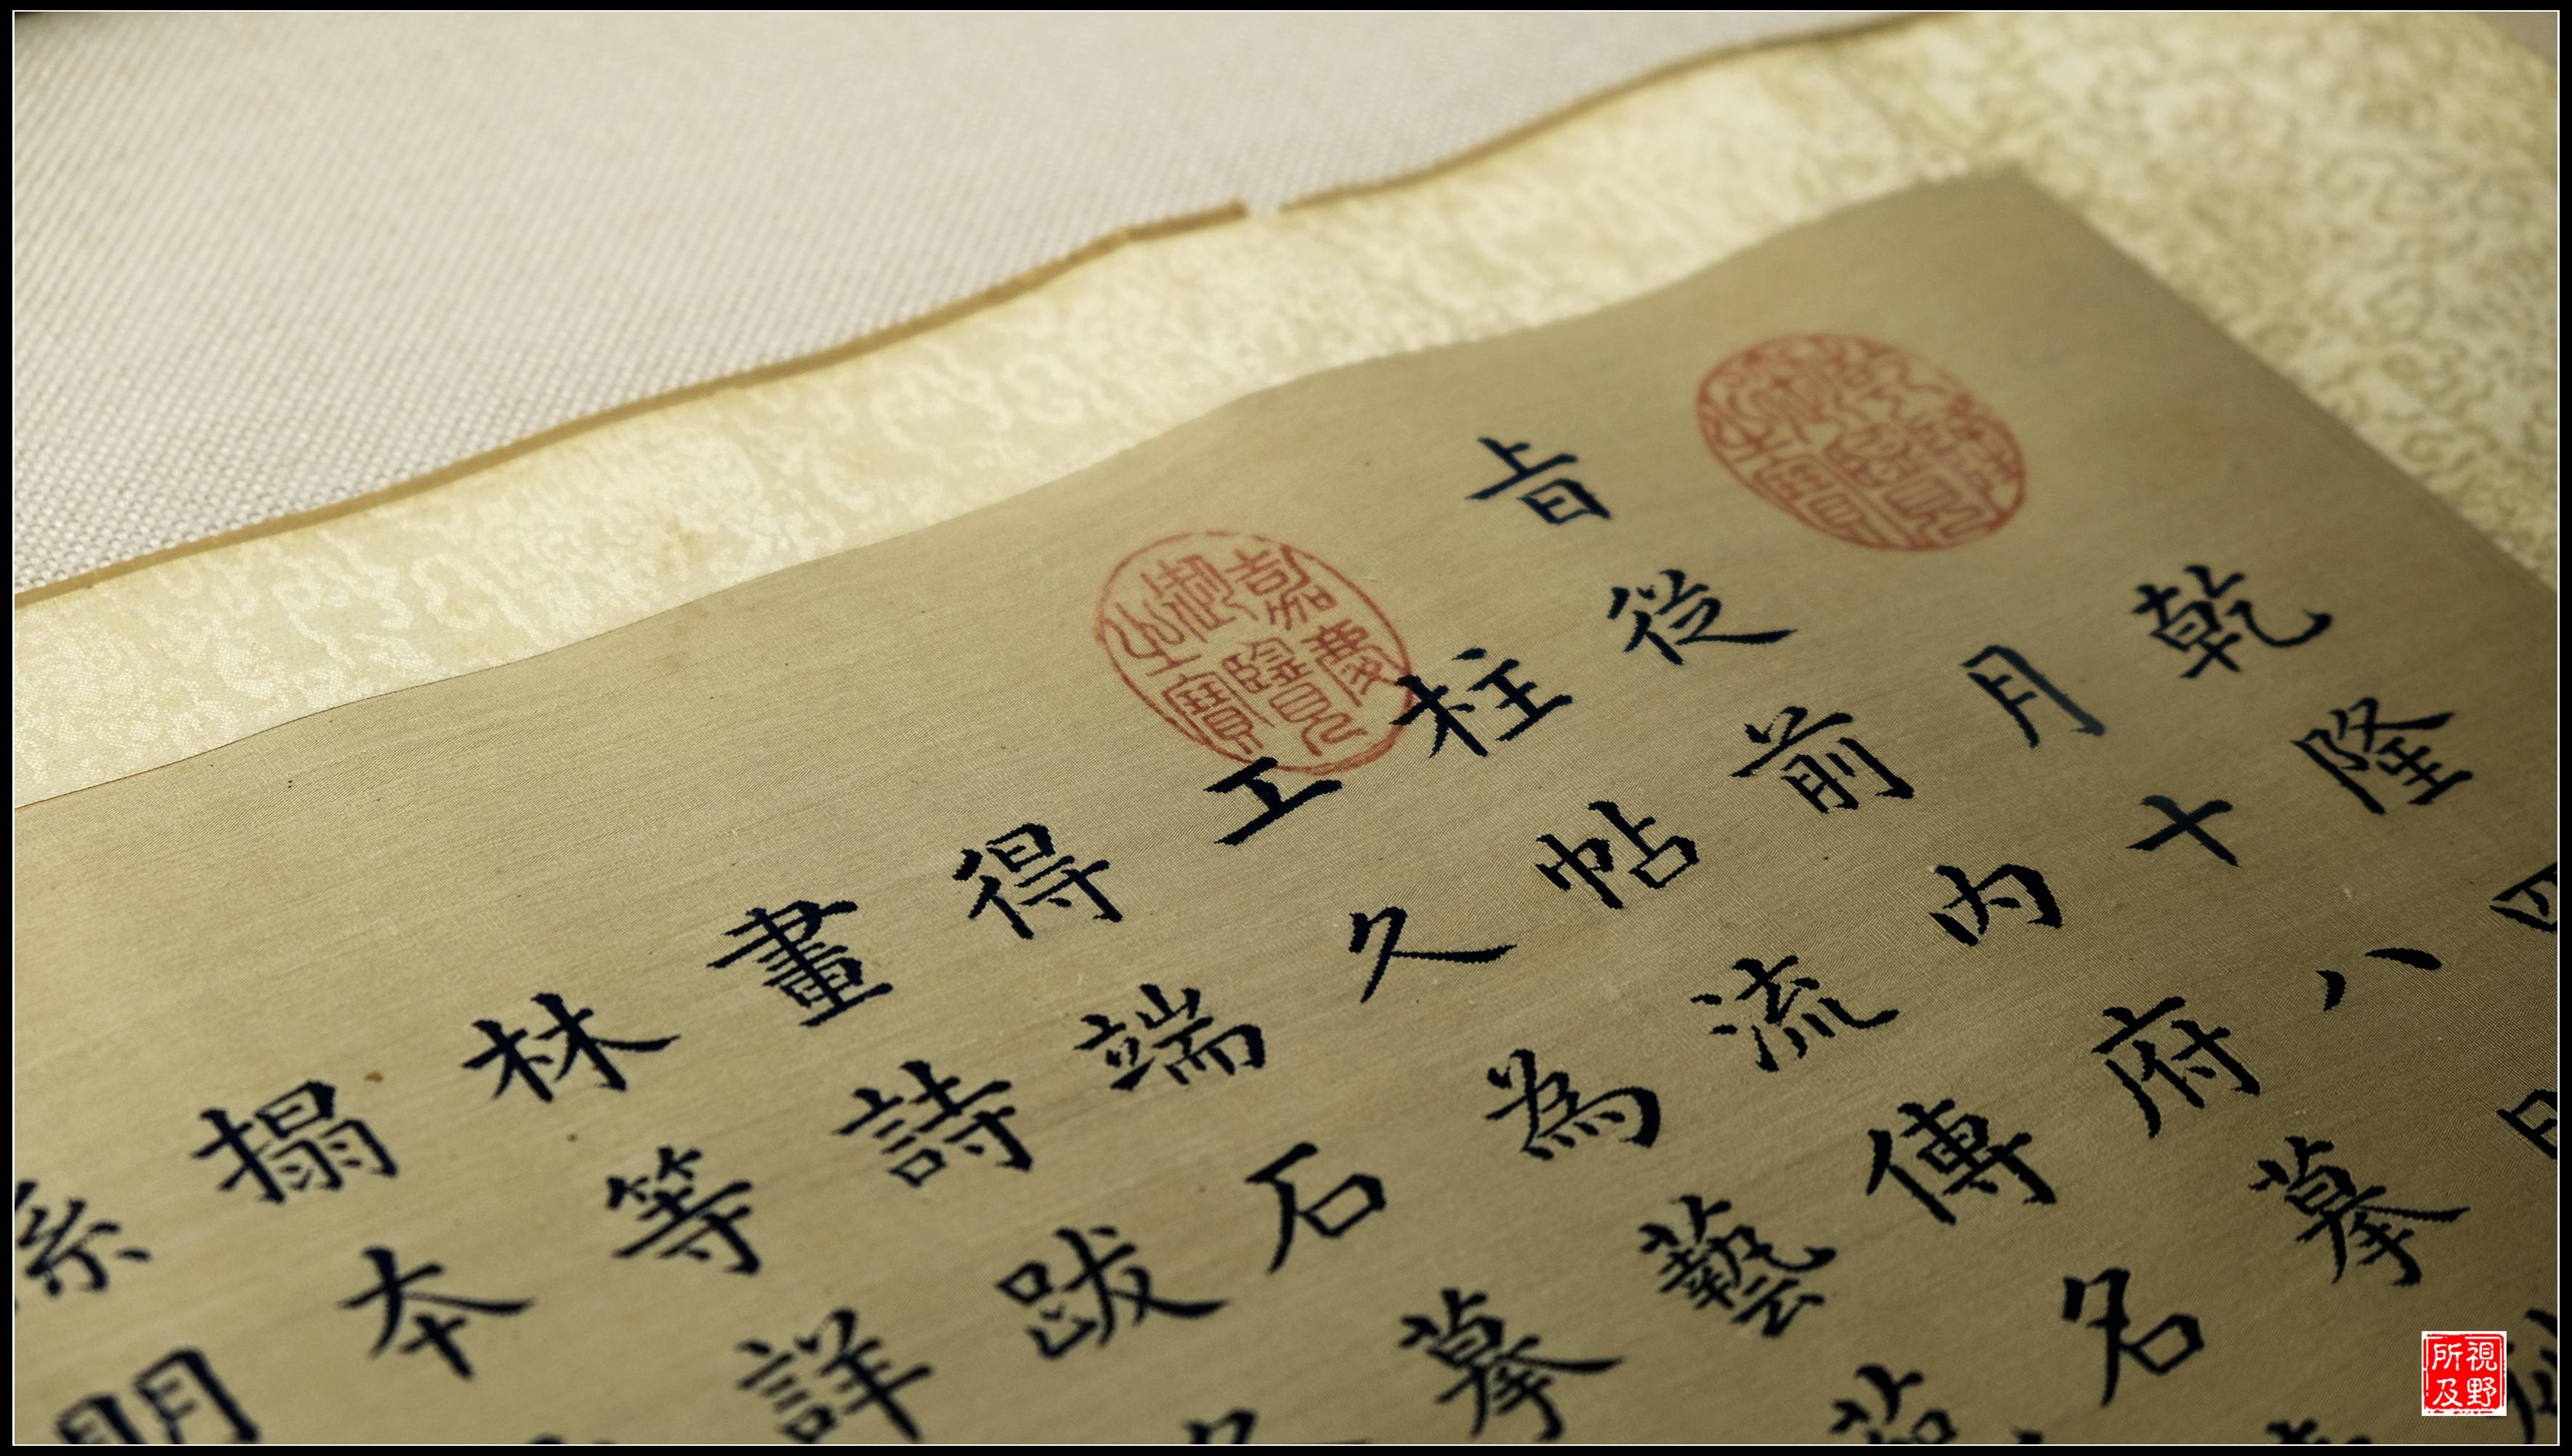 乾隆御覽之寶
乾隆四
月十八日
旨從前內府摹刻
嘉慶御覽之寶
柱帖流傳名
工久為藝苑
得端石摹
畫詩跋
林等詳
搨本
明
視野
所及